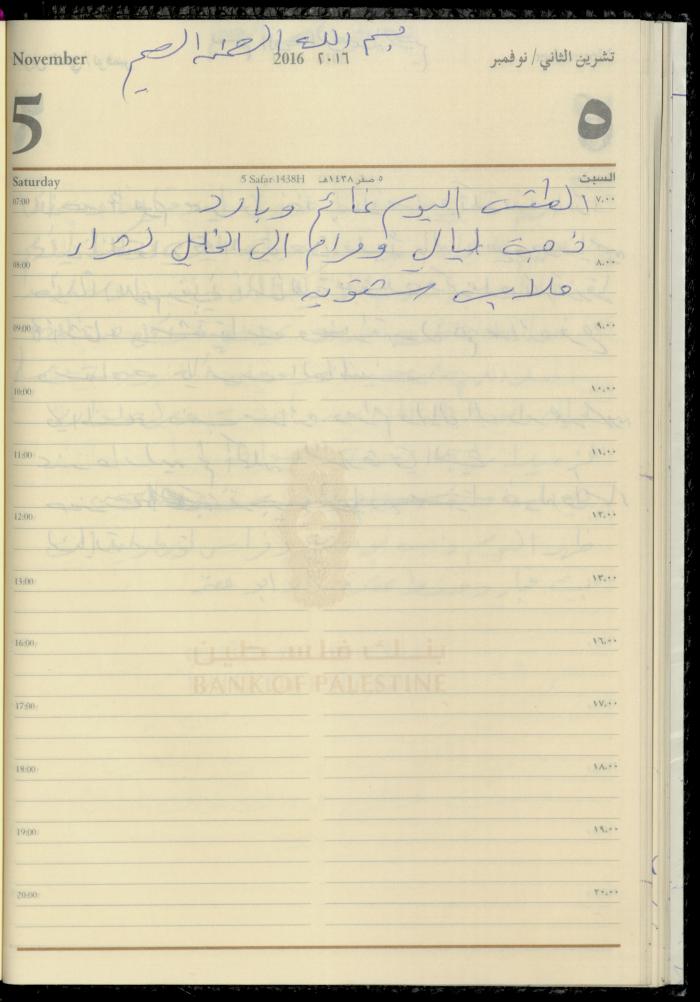 بسم الله الرحمن الرحيم
November 2016 ٢٠١٦ تشرين الثاني / نوفمبر
5 ٥
Saturday 5 Safar 1438H ٥ صفر ١٤٣٨هـ السبت
07:00 الطقس اليوم غائم وبارد ٧,٠٠
ذهبت ليالي ومرام الى الخليل لشراء
08:00 ٨,٠٠
ملابس شتويه
09:00 ٩,٠٠
10:00 ١٠,٠٠
11:00 ١١,٠٠
12:00 ١٢,٠٠
13:00 ١٣,٠٠
16:00 ١٦,٠٠
بنك فلسطين
BANK OF PALESTINE
17:00 ١٧,٠٠
18:00 ١٨,٠٠
19:00 ١٩,٠٠
20:00 ٢٠,٠٠